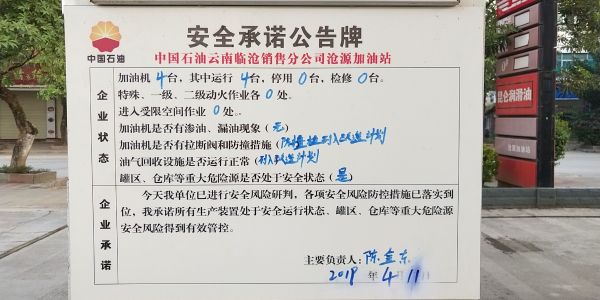 安全承诺公告牌
中国石油
中国石油云南临沧销售分公司沧源加油站
企业状态
加油机 4 台，其中运行 4 台，停用 0 台，检修 0 台。
特殊、一级、二级动火作业各 0 处。
进入受限空间作业 0 处。
加油机是否有渗油、漏油现象（无）
加油机是否有拉断阀和防撞措施（防撞柱列入改造计划
油气回收设施是否运行正常（列入改造计划
罐区、仓库等重大危险源是否处于安全状态（是）
企业承诺
今天我单位已进行安全风险研判，各项安全风险防控措施已落实到
位，我承诺所有生产装置处于安全运行状态、罐区、仓库等重大危险源
安全风险得到有效管控。
主要负责人：陈金东
2019 年 4 月 11 日
昆仑润滑油